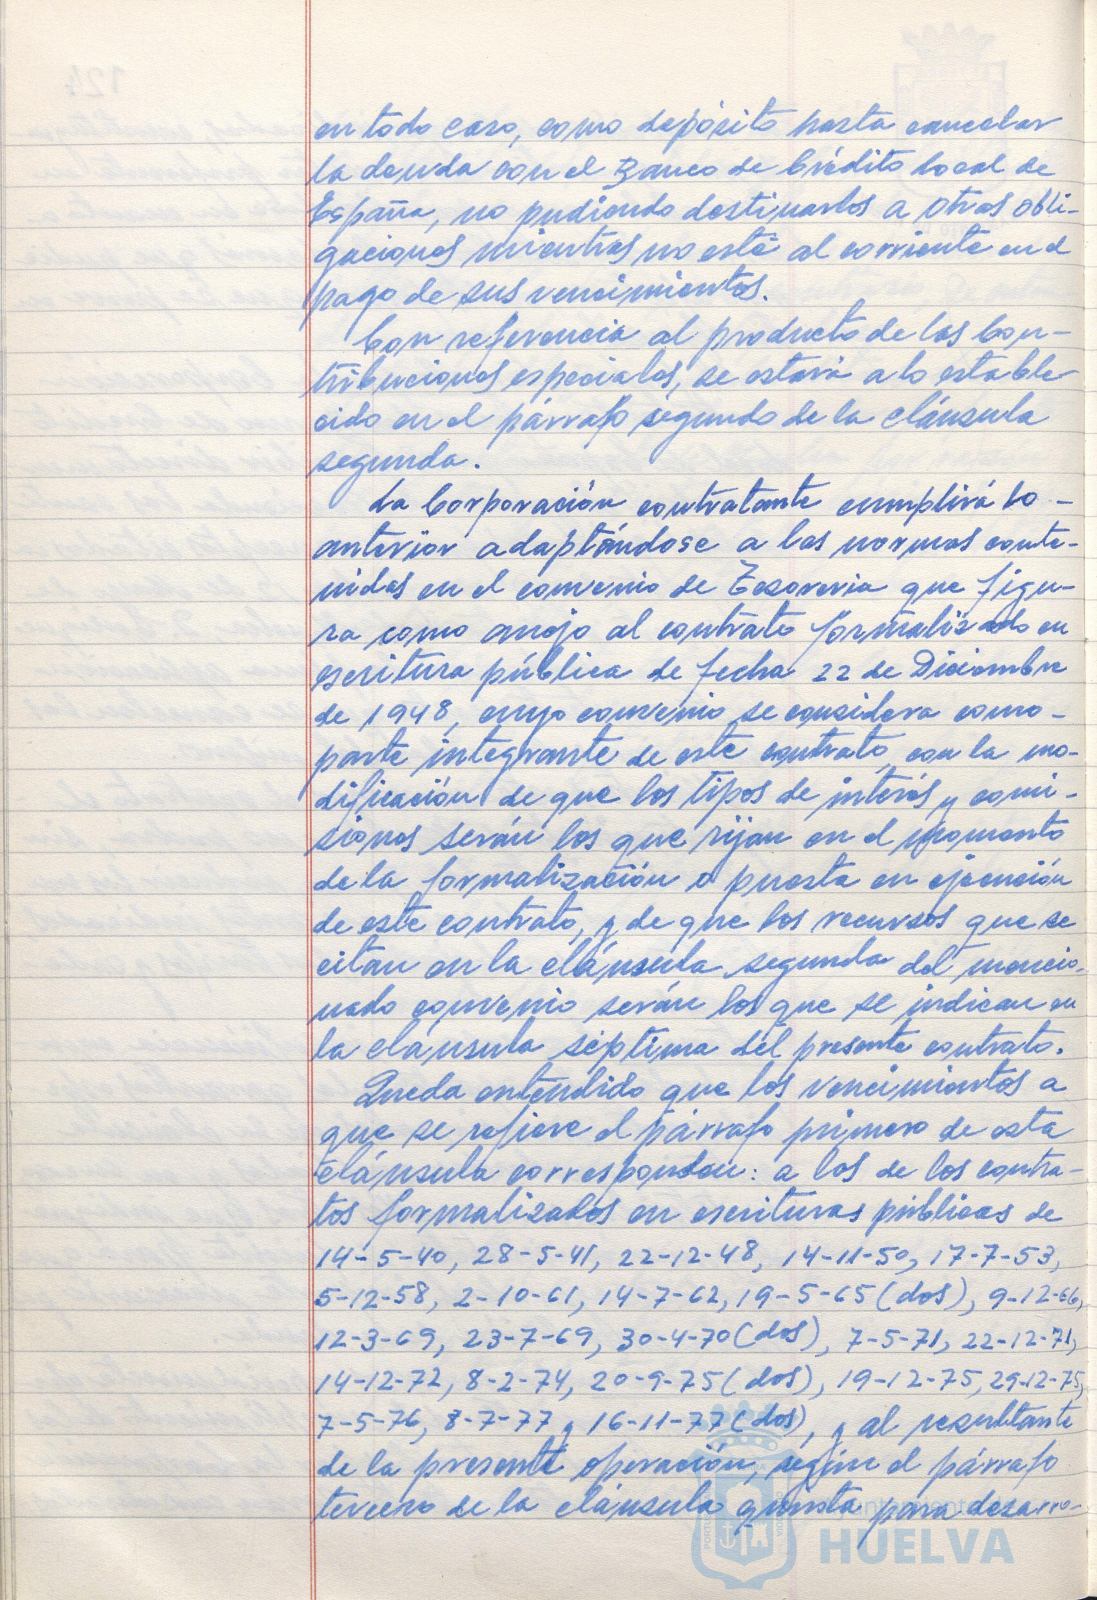 en todo caso, como depósito hasta cancelar
la deuda con el Banco de Crédito Local de
España, no pudiendo destinarlos a otras obli-
gaciones mientras no esté al corriente en el
pago de sus vencimientos.
Con referencia al producto de las Con-
tribuciones especiales, se estará a lo estable
cido en el párrafo segundo de la cláusula
segunda.
La Corporación contratante cumplirá lo -
anterior adaptándose a las normas conte-
nidas en el convenio de Tesorería que figu-
ra como anejo al contrato formalizado en
escritura pública de fecha 22 de Diciembre
de 1948, cuyo convenio se considera como -
parte integrante de este contrato, con la mo-
dificación de que los tipos de interés y comi-
siones serán los que rijan en el momento
de la formalización o puesta en ejecución
de este contrato, y de que los recursos que se
citan en la cláusula segunda del mencio-
nado convenio serán los que se indican en
la cláusula séptima del presente contrato.
Queda entendido que los vencimientos a
que se refiere el párrafo primero de esta
cláusula corresponden: a los de los contra-
tos formalizados en escrituras públicas de
14-5-40, 28-5-41, 22-12-48, 14-11-50, 17-7-53,
5-12-58, 2-10-61, 14-7-62, 19-5-65 (dos), 9-12-66,
12-3-69, 23-7-69, 30-4-70 (dos), 7-5-71, 22-12-71,
14-12-72, 8-2-74, 20-9-75 (dos), 19-12-75, 29-12-75,
7-5-76, 8-7-77 y 16-11-77 (dos), y al resultante
de la presente operación, según el párrafo
tercero de la cláusula quinta para desarro-
Ayuntamiento de
HUELVA